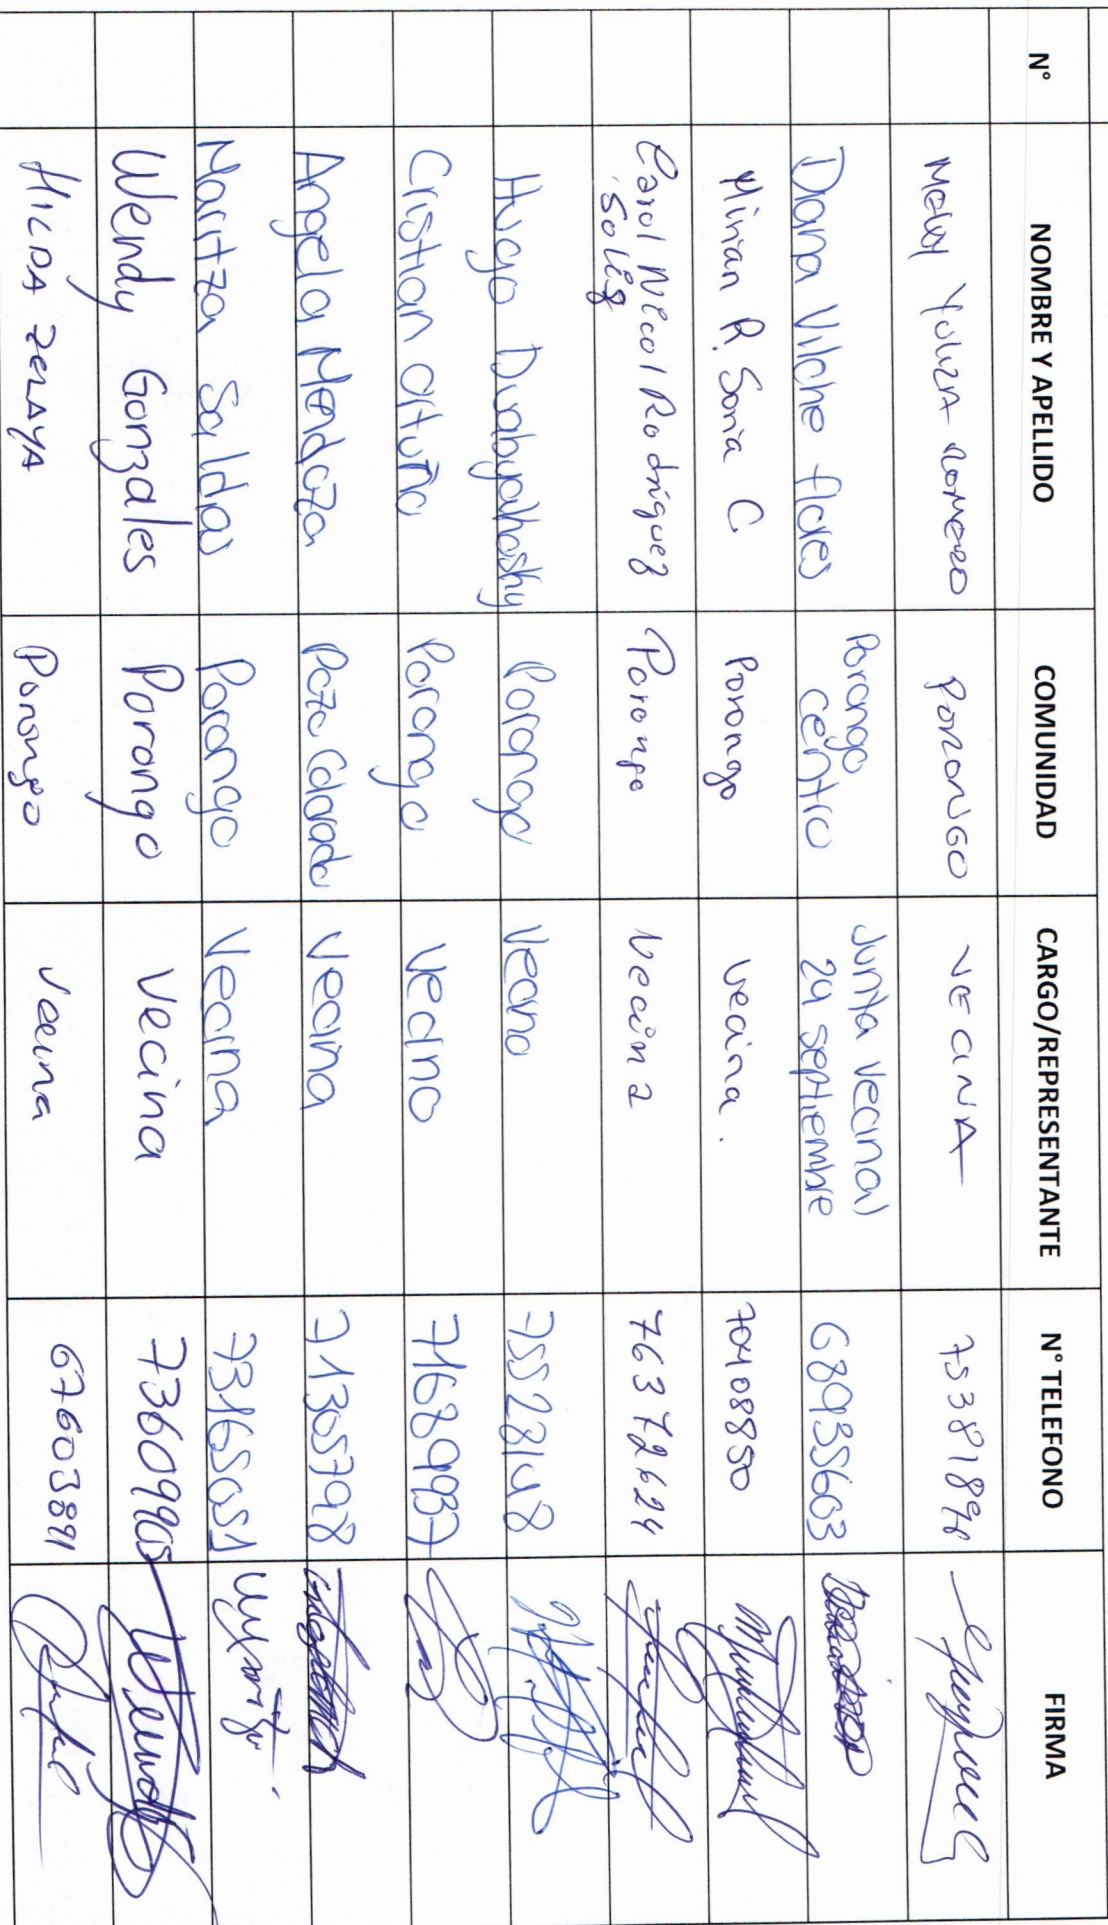 N° NOMBRE Y APELLIDO COMUNIDAD CARGO/REPRESENTANTE N° TELEFONO FIRMA
Melvy Yuliza Romero PORONGO VECINA 75381898
Diana Vilche flores Porongo centro Junta Vecinal 24 septiembre 68935603
Mirian R. Soria C Porongo vecina. 70408850
Carol Nicol Rodriguez Solis Porongo Vecina 76372624
Hugo Porongo Vecino 75528148
Cristian Ortuño Porongo Vecino 71689937
Angela Mendoza Pozo Colorado Vecina 71305798
Maritza Saldias Porongo Vecina 73165051
Wendy Gonzales Porongo Vecina 73609905
HILDA ZELAYA Porongo Vecina 67603891